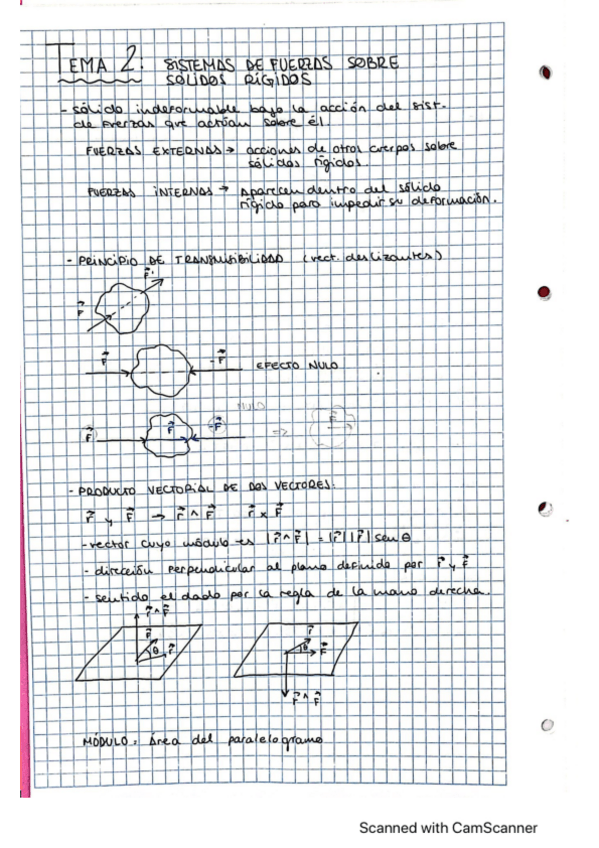 TEMA 2. SISTEMAS DE FUERZAS SOBRE
SÓLIDOS RÍGIDOS
- sólido indeformable bajo la acción del sist.
de fuerzas que actúan sobre él.
FUERZAS EXTERNAS → acciones de otros cuerpos sobre
sólidos rígidos.
FUERZAS INTERNAS → Aparecen dentro del sólido
rígido para impedir su deformación.
- PRINCIPIO DE TRANSMISIBILIDAD (vect. deslizantes)
F⃗'
F⃗
F⃗ -F⃗ EFECTO NULO
NULO
F⃗ F⃗ -F⃗ => F⃗
- PRODUCTO VECTORIAL DE DOS VECTORES:
r⃗ y F⃗ → r⃗ ∧ F⃗ r⃗ × F⃗
- vector cuyo módulo es |r⃗ ∧ F⃗| = |r⃗| |F⃗| sen θ
- dirección perpendicular al plano definido por r⃗ y F⃗
- sentido el dado por la regla de la mano derecha.
r⃗ ∧ F⃗
F⃗ θ r⃗ r⃗ θ F⃗
r⃗ ∧ F⃗
MÓDULO = área del paralelogramo
Scanned with CamScanner